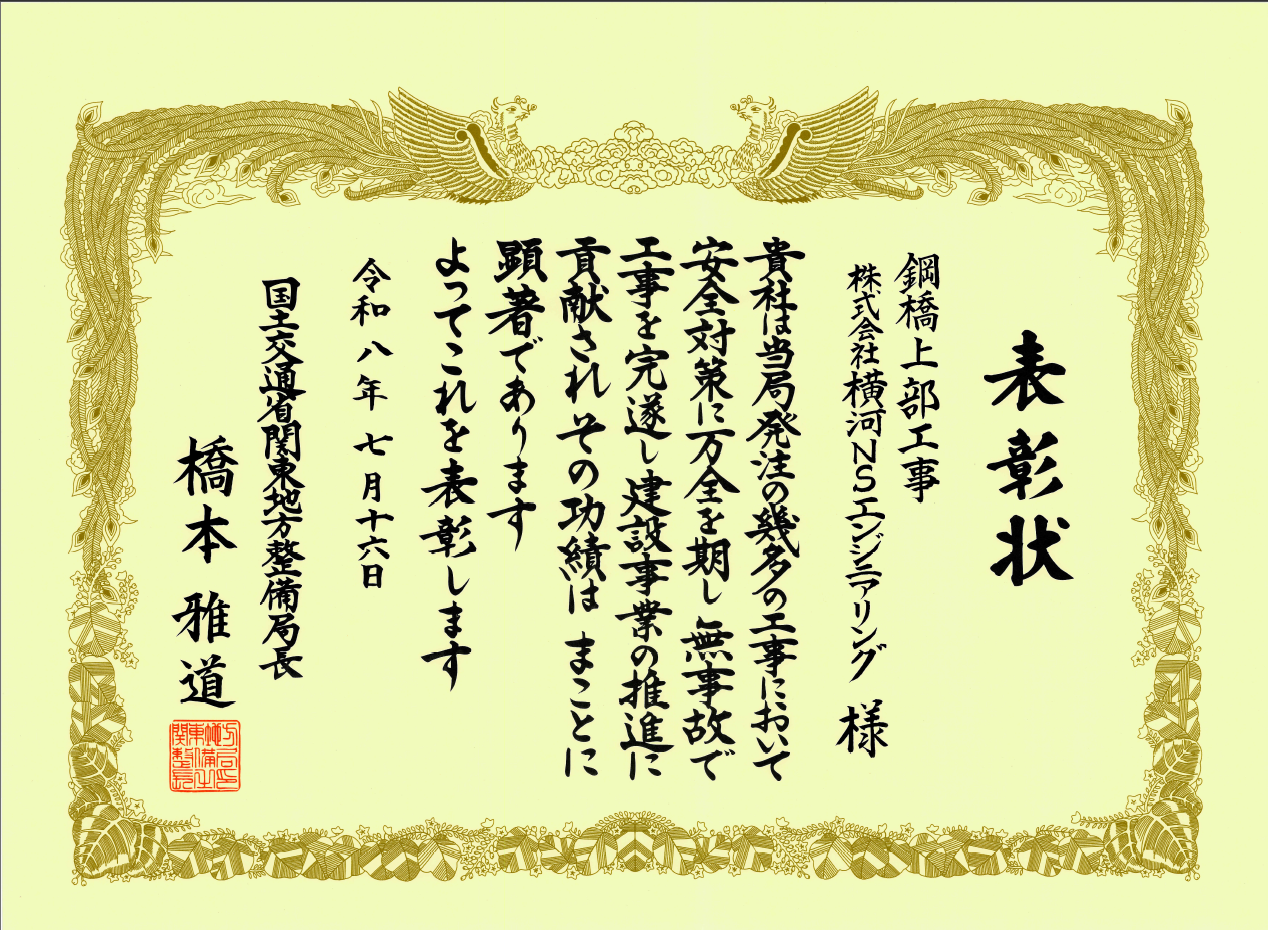 表彰状
鋼橋上部工事
株式会社横河NSエンジニアリング 様
貴社は当局発注の幾多の工事において
安全対策に万全を期し無事故で
工事を完遂し建設事業の推進に
貢献されその功績は まことに
顕著であります
よってこれを表彰します
令和八年七月十六日
国土交通省関東地方整備局長
橋本雅道